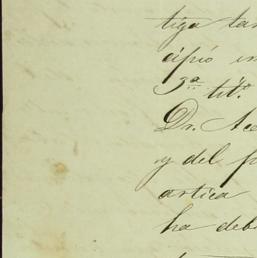 tiga tan
cipió en
3.ª tít.º
Dr. Ace
y del p
artica
ha deb